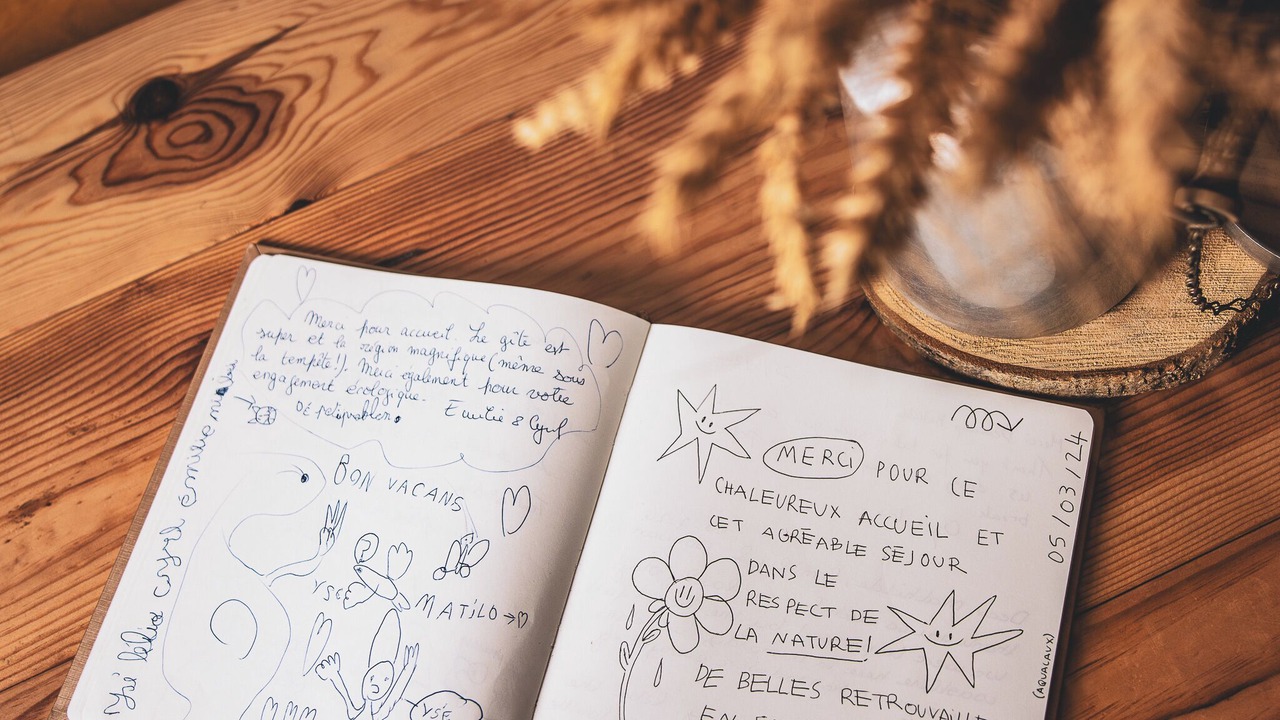 Merci pour accueil. Le gîte est
super et la région magnifique (même sous
la tempête!). Merci également pour votre
engagement écologique.
Emilie & Cyril
BON VACANS
YSÉ
MATILO
YSE
MERCI POUR CE
CHALEUREUX ACCUEIL ET
CET AGRÉABLE SÉJOUR
DANS LE
RESPECT DE
LA NATURE!
DE BELLES RETROUVAILLE
EN
05/03/24
(AQUACAUX)